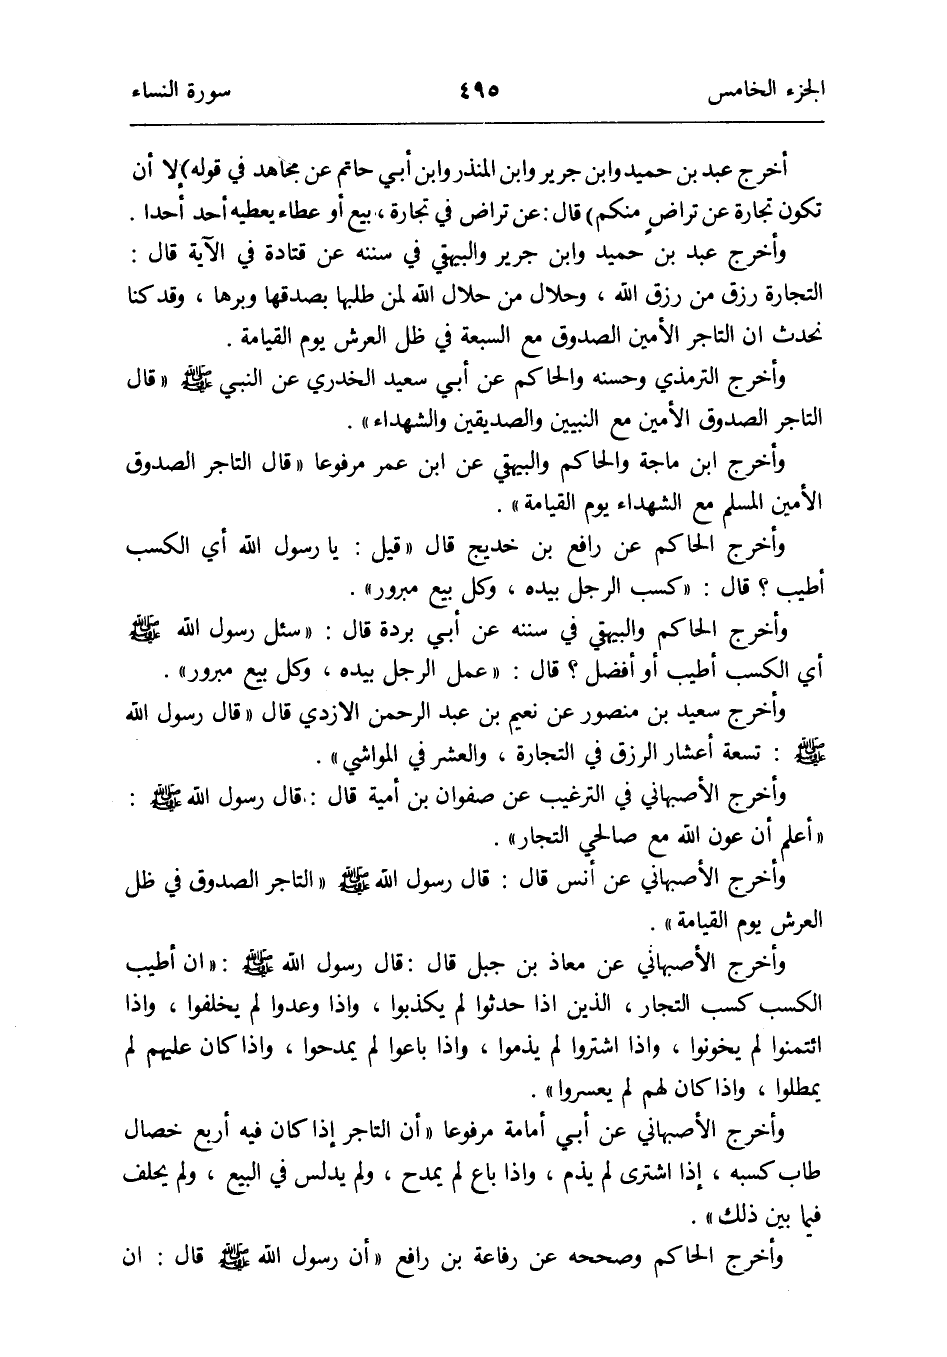 الجزء الخامس ٤٩٥ سورة النساء
أخرج عبد بن حميد وابن جرير وابن المنذر وابن أبي حاتم عن مجاهد في قوله (إلا أن
تكون تجارة عن تراضٍ منكم) قال : عن تراض في تجارة ، بيع أو عطاء يعطيه أحد أحدا .
وأخرج عبد بن حميد وابن جرير والبيهقي في سننه عن قتادة في الآية قال :
التجارة رزق من رزق الله ، وحلال من حلال الله لمن طلبها بصدقها وبرها ، وقد كنا
نحدث ان التاجر الأمين الصدوق مع السبعة في ظل العرش يوم القيامة .
وأخرج الترمذي وحسنه والحاكم عن أبي سعيد الخدري عن النبي ﷺ «قال
التاجر الصدوق الأمين مع النبيين والصديقين والشهداء» .
وأخرج ابن ماجة والحاكم والبيهقي عن ابن عمر مرفوعا «قال التاجر الصدوق
الأمين المسلم مع الشهداء يوم القيامة» .
وأخرج الحاكم عن رافع بن خديج قال «قيل : يا رسول الله أي الكسب
أطيب ؟ قال : «كسب الرجل بيده ، وكل بيع مبرور» .
وأخرج الحاكم والبيهقي في سننه عن أبي بردة قال : «سئل رسول الله ﷺ
أي الكسب أطيب أو أفضل ؟ قال : «عمل الرجل بيده ، وكل بيع مبرور» .
وأخرج سعيد بن منصور عن نعيم بن عبد الرحمن الازدي قال «قال رسول الله
ﷺ : تسعة أعشار الرزق في التجارة ، والعشر في المواشي» .
وأخرج الأصبهاني في الترغيب عن صفوان بن أمية قال : قال رسول الله ﷺ :
«أعلم أن عون الله مع صالحي التجار» .
وأخرج الأصبهاني عن أنس قال : قال رسول الله ﷺ «التاجر الصدوق في ظل
العرش يوم القيامة» .
وأخرج الأصبهاني عن معاذ بن جبل قال : قال رسول الله ﷺ : «ان أطيب
الكسب كسب التجار ، الذين اذا حدثوا لم يكذبوا ، واذا وعدوا لم يخلفوا ، واذا
ائتمنوا لم يخونوا ، واذا اشتروا لم يذموا ، واذا باعوا لم يمدحوا ، واذا كان عليهم لم
يمطلوا ، واذا كان لهم لم يعسروا» .
وأخرج الأصبهاني عن أبي أمامة مرفوعا «أن التاجر إذا كان فيه أربع خصال
طاب كسبه ، إذا اشترى لم يذم ، واذا باع لم يمدح ، ولم يدلس في البيع ، ولم يحلف
فيما بين ذلك» .
وأخرج الحاكم وصححه عن رفاعة بن رافع «أن رسول الله ﷺ قال : ان